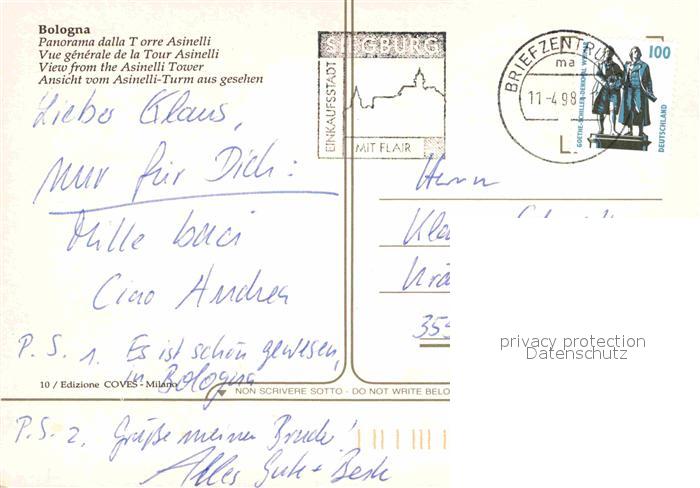 Bologna
Panorama dalla T orre Asinelli
Vue générale de la Tour Asinelli
View from the Asinelli Tower
Ansicht vom Asinelli-Turm aus gesehen
Lieber Klaus,
nur für Dich:
Mille baci
Ciao Andrea
P.S. 1. Es ist schön gewesen,
in Bologna
10 / Edizione COVES - Milano
P.S. 2. Grüße meinen Bruder!
Alles Gute + Beste
SIEGBURG
EINKAUFSSTADT
MIT FLAIR
BRIEFZENTRUM
ma
11-4.98
100
GOETHE-SCHILLER-DENKMAL WEIMAR
DEUTSCHLAND
Herrn
Kla
Krä
355
NON SCRIVERE SOTTO - DO NOT WRITE BELO
privacy protection
Datenschutz